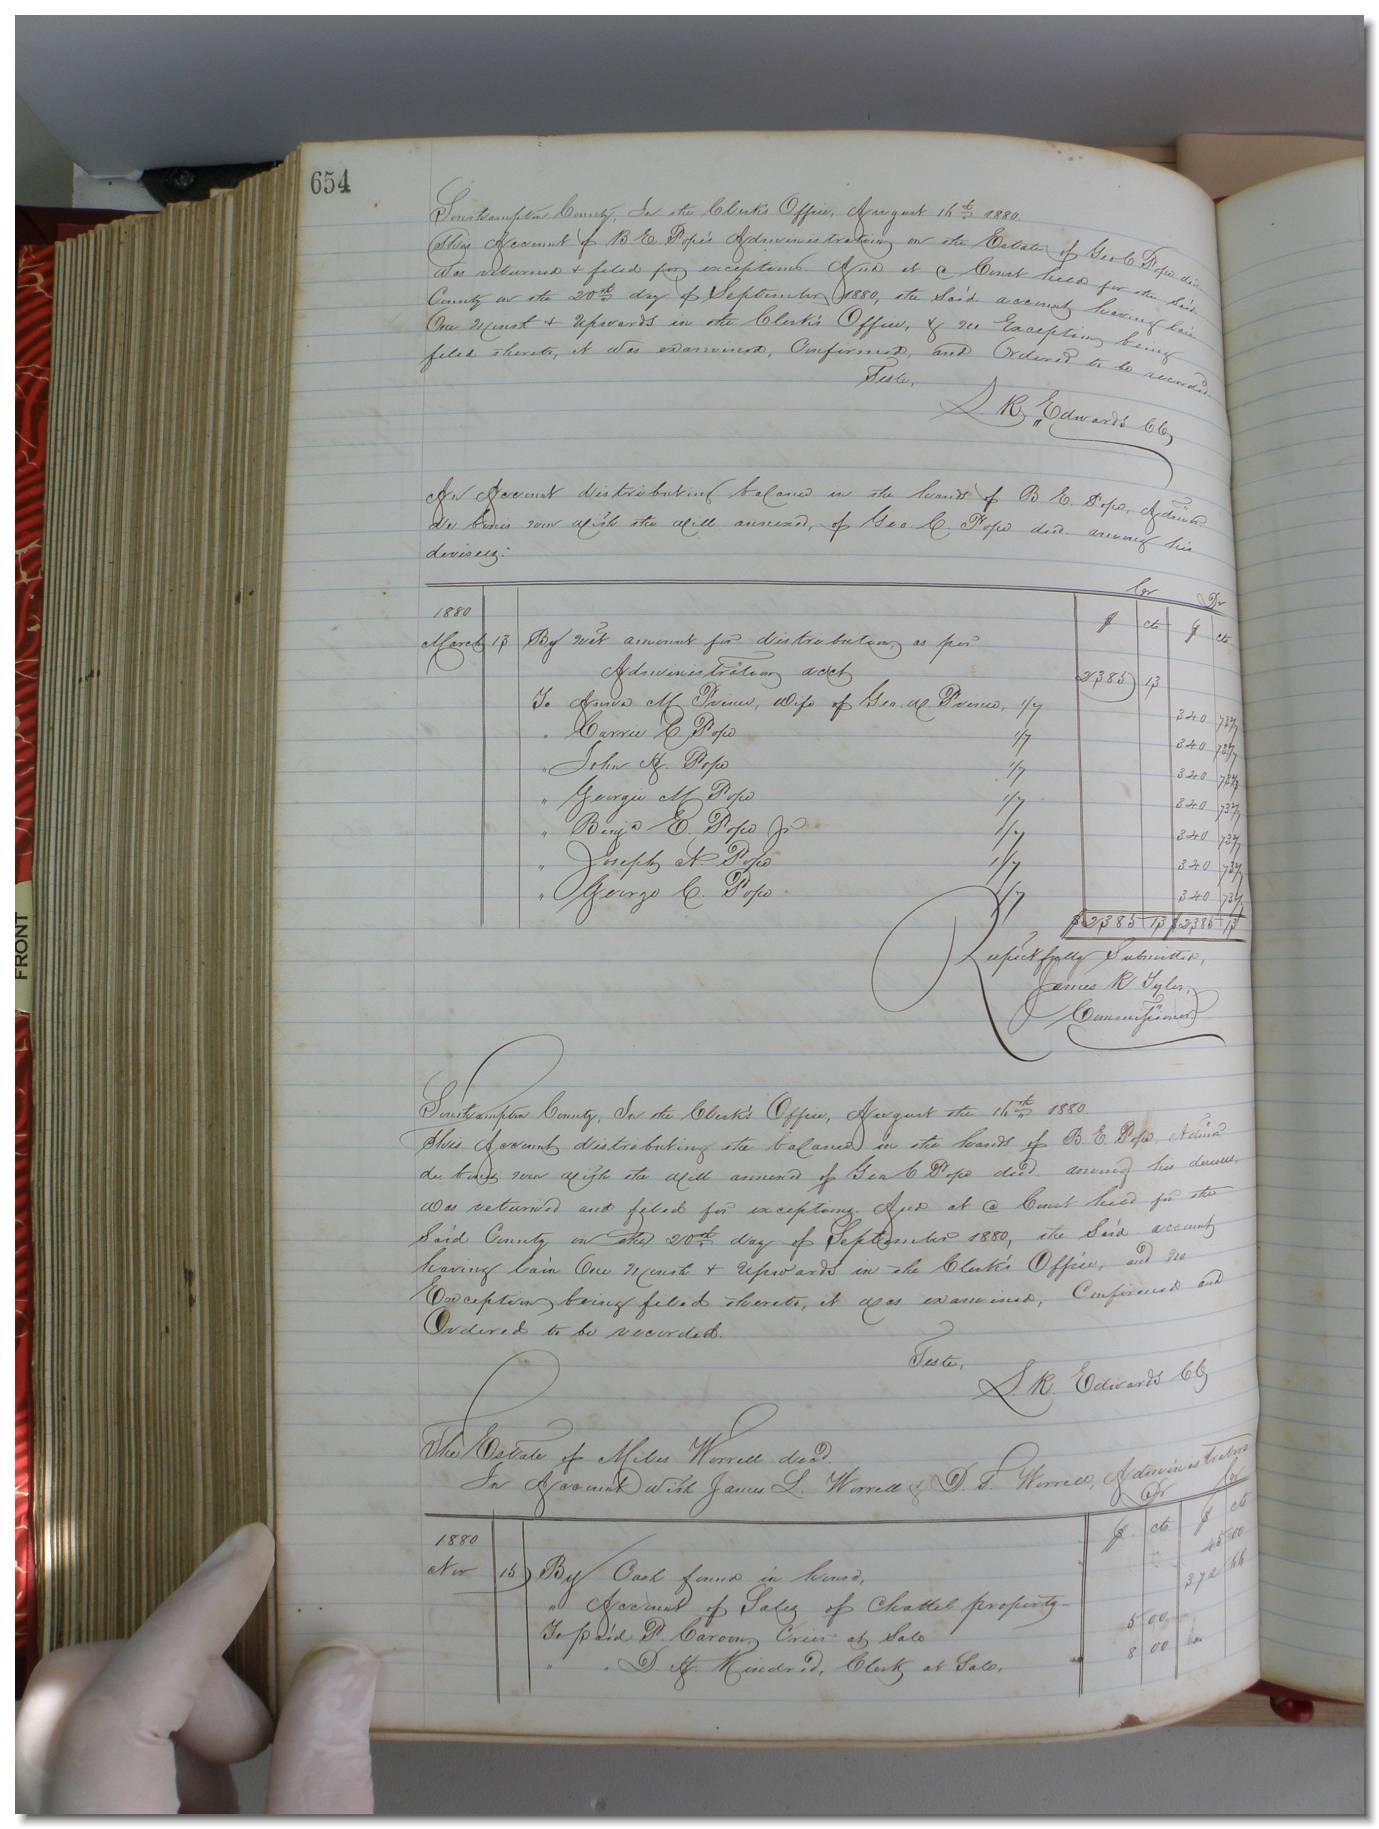 654
Southampton County, In the Clerk's Office, August 16th 1880.
This Account of B. E. Pope's Administration on the Estate of Geo C Pope decd
was returned & filed for exceptions. And at a Court held for the said
County on the 20th day of September 1880, the said account having lain
One Month & Upwards in the Clerk's Office, & no Exception being
filed thereto, it was examined, Confirmed, and Ordered to be recorded.
Teste,
L. R. Edwards Clk
An Account distributing balance in the hands of B. E. Pope, Admr
de bonis non with the will annexed, of Geo. C. Pope decd. among his
devisees.
Cr Dr
1880 $ cts $ cts
March 13 By net amount for distribution as per
Administration acct 2385 13
To Anna M Prince, wife of Geo. W Prince, 1/7 340 73 2/7
" Carrie C Pope 1/7 340 73 2/7
" John A. Pope 1/7 340 73 2/7
" Georgie M Pope 1/7 340 73 2/7
" Benja E. Pope Jr 1/7 340 73 2/7
" Joseph N. Pope 1/7 340 73 2/7
" George C. Pope 1/7 340 73 2/7
$2385 13 $2385 13
Respectfully Submitted,
James R Tyler,
Commissioner
Southampton County, In the Clerk's Office, August the 16th 1880
This Account distributing the balance in the hands of B. E. Pope, Admr
de bonis non with the will annexed of Geo C Pope decd. among his devisees,
was returned and filed for exceptions. And at a Court held for the
said County on the 20th day of September 1880, the said account
having lain One Month & Upwards in the Clerk's Office, and no
Exception being filed thereto, it was examined, Confirmed and
Ordered to be recorded.
Teste,
L. R. Edwards Clk
The Estate of Miles Worrell decd.
In Account with James L. Worrell & D. T. Worrell, Administrators
Dr Cr
1880 $ cts $ cts
Nov 15 By Cash found in house, 45 00
" Account of Sales of Chattel property 372 66
To paid P. Caroon, Crier at Sale 5 00
" " D. A. Kindred, Clerk at Sale, 8 00
FRONT